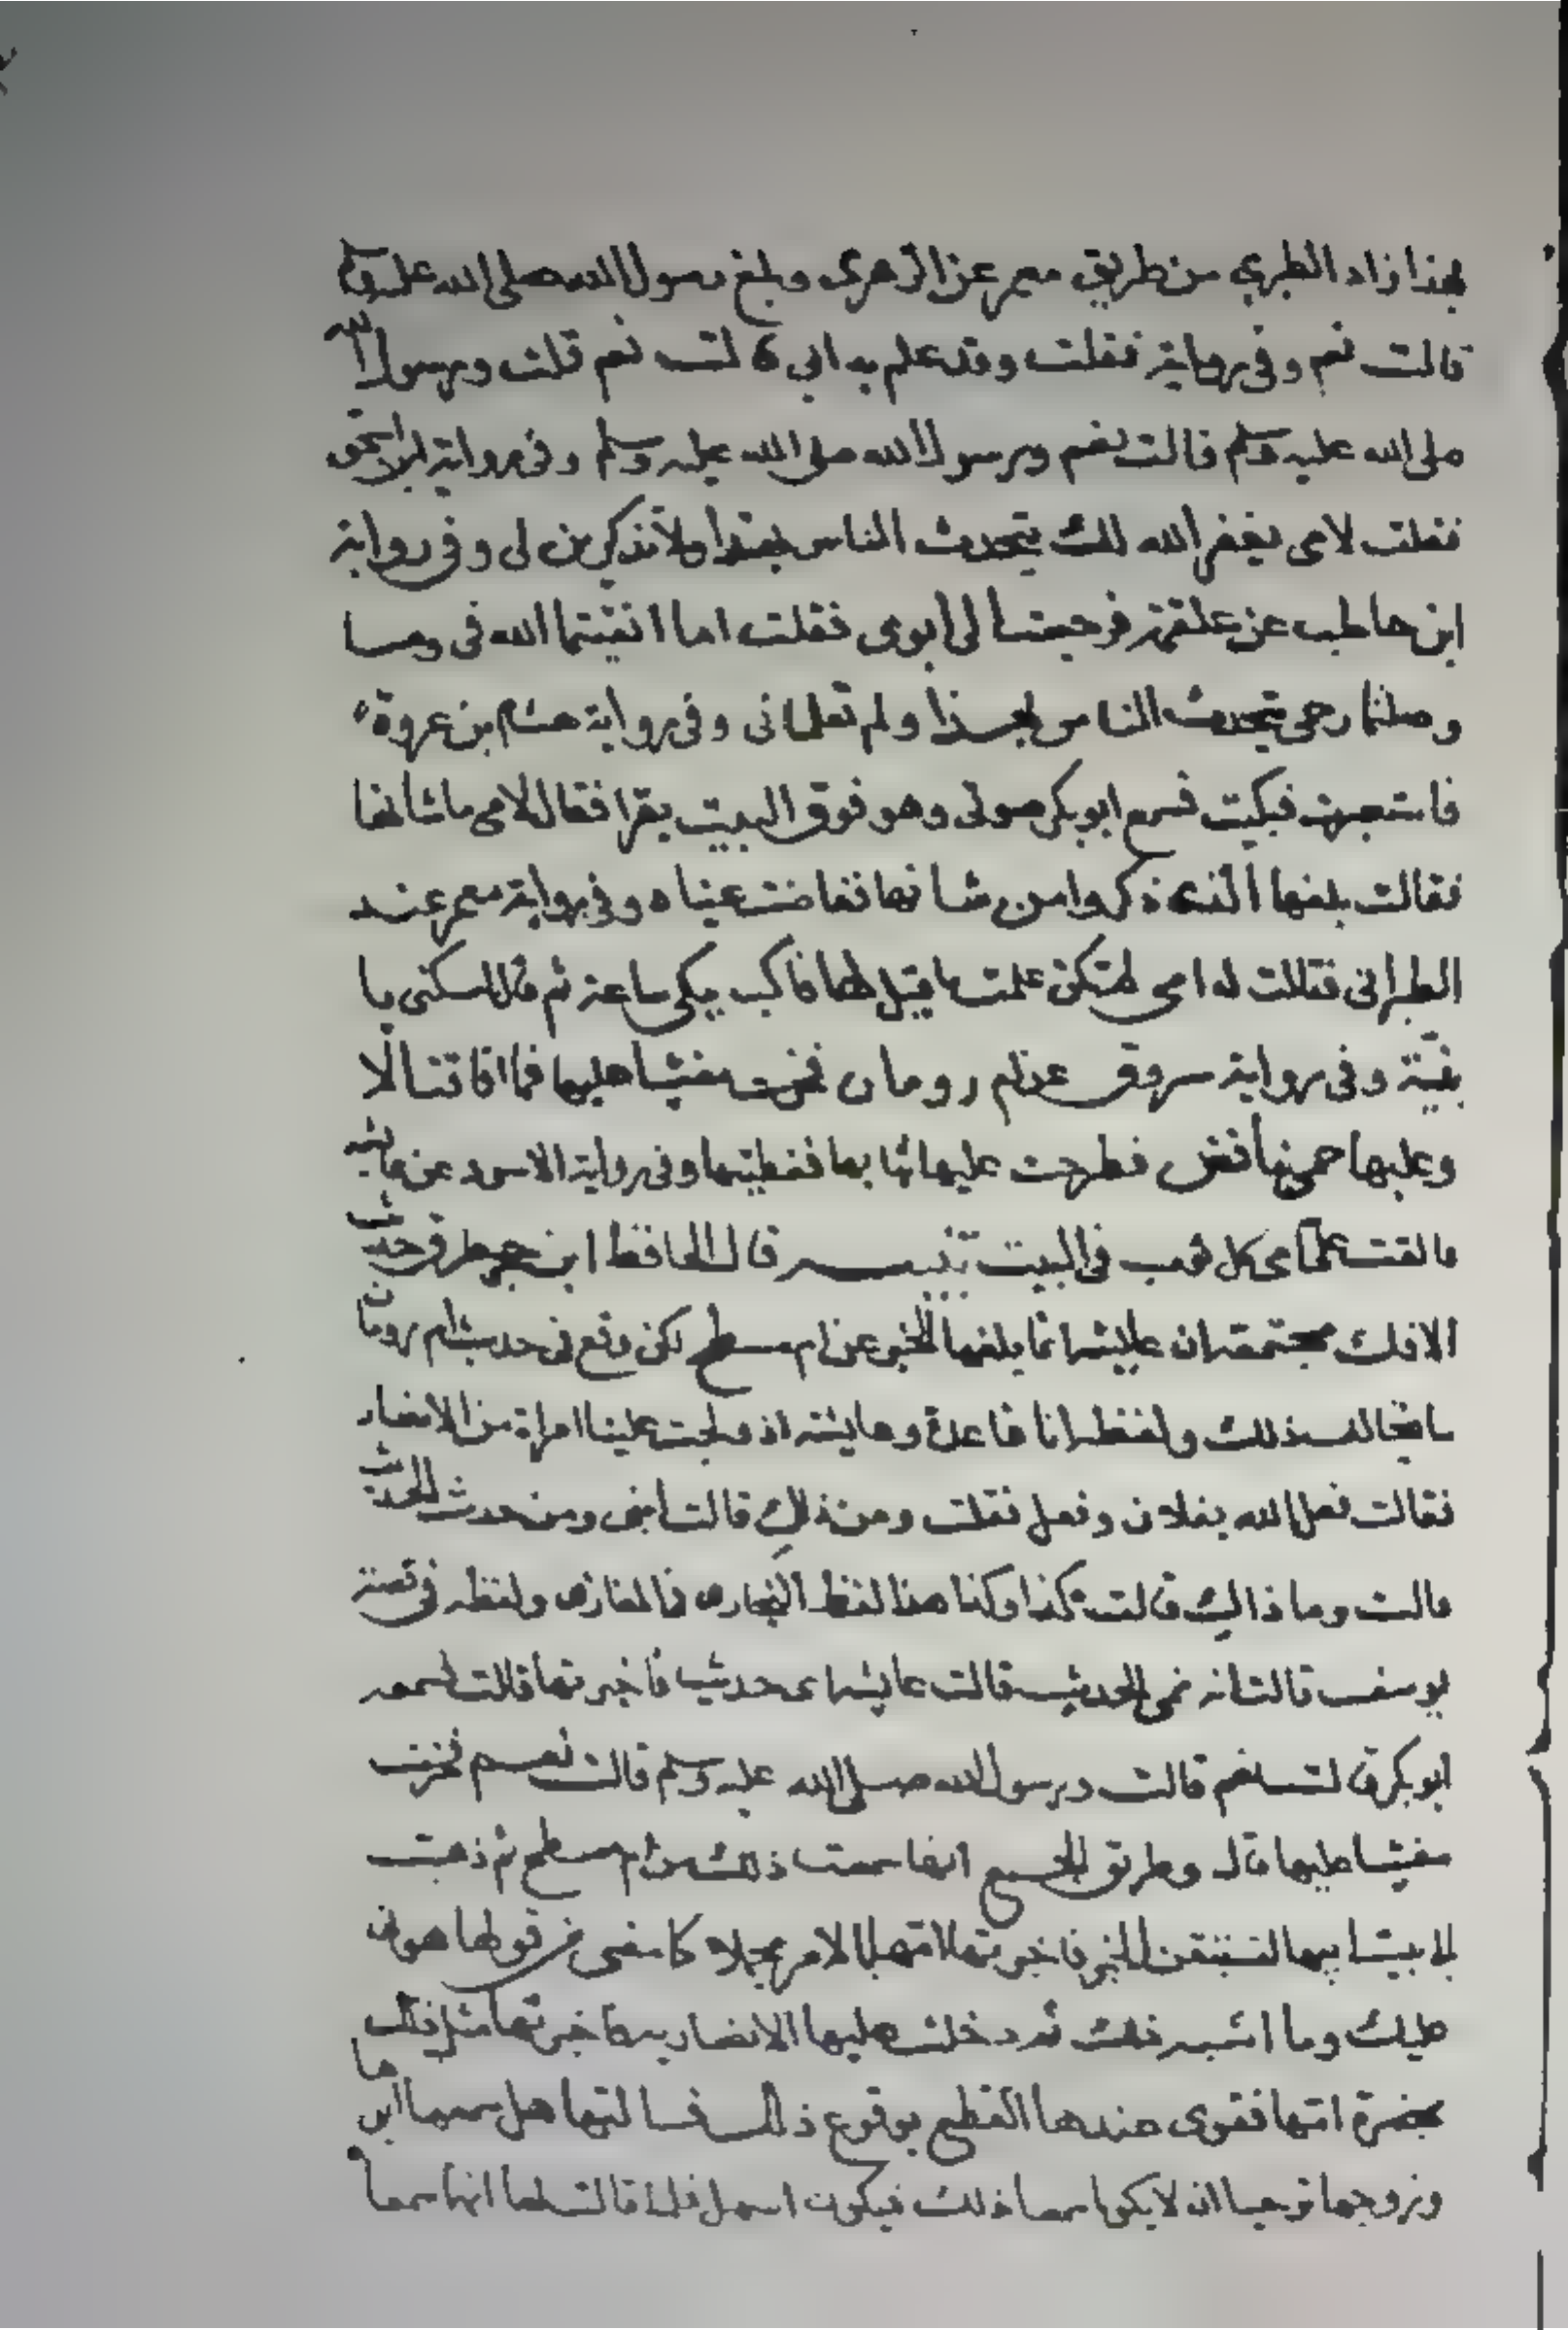 بهذا زاد الطبري من طريق معمر عن الزهري وبلغ رسول الله صلى الله عليه وسلم
قالت نعم وفي رواية فقلت وقد علم به ابي قالت نعم قلت ورسول الله
صلى الله عليه وسلم قالت نعم ورسول الله صلى الله عليه وسلم وفي رواية ابن اسحق
فقلت لامي يغفر الله لك يتحدث الناس بهذا ولا تذكرين لي وفي رواية
ابن حاطب عن علقمة فرجعت الى ابوي فقلت اما اتقيتما الله في وما
وصلتما رحمي يتحدث الناس بهذا ولم تعلماني وفي رواية هشام بن عروة
فاستعبرت فبكيت فسمع ابو بكر صوتي وهو فوق البيت يقرا فقال لامي ما شانها
فقالت بلغها الذي ذكروا من شانها ففاضت عيناه وفي رواية معمر عند
الطبراني فقالت له امي لم تكن علمت ما قيل لها فاكب يبكي ساعة ثم قال اسكتي يا
بنية وفي رواية مسروق عن ام رومان فخرت مغشيا عليها فما افاقت الا
وعليها حمى بنافض فطرحت عليها ثيابها فغطيتها وفي رواية الاسود عن عائشة
فالقت علي امي كل ثوب في البيت تنبيه قال الحافظ ابن حجر طرق حديث
الافك مجتمعة ان عايشة انما بلغها الخبر عن ام مسطح لكن وقع في حديث ام رومان
ما يخالف ذلك ولفظه انا قاعدة وعايشة اذ ولجت علينا امراة من الانصار
فقالت فعل الله بفلان وفعل فقلت ومن ذلك قالت ابني ومن حدث الحديث
قالت وما ذالك قالت كذا وكذا هذا لفظ البخاري في المغازي ولفظه في قصة
يوسف قالت انه نمى الحديث قالت عايشة اي حديث فاخبرتها قالت اسمعه
ابو بكر قالت نعم قالت ورسول الله صلى الله عليه وسلم قالت نعم فخرت
مغشيا عليها قال وطريق الجمع انها سمعت ذلك من ام مسطح ثم ذهبت
لبيت ابيها لتستيقن الخبر فاخبرتها امها بالامر مجملا كما مضى من قولها هوني
عليك وما اشبه ذلك ثم دخلت عليها الانصارية فاخبرتها مثل ذلك
بحضرة امها فقوى عندها القطع بوقوع ذلك فسالتها هل سمعه ابوها
وزوجها ترجيا ان لا يكونا سمعا ذلك فيكون اسهل فلما قالت لها انهما سمعا